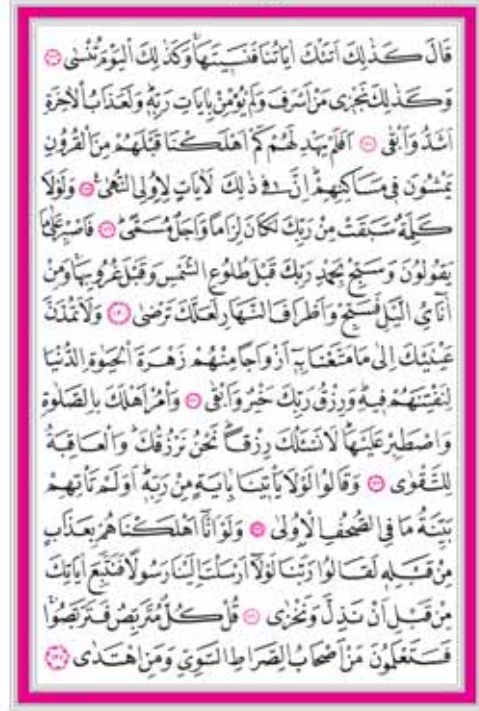 قَالَ كَذٰلِكَ اَتَتْكَ اٰيَاتُنَا فَنَسٖيتَهَاۚ وَكَذٰلِكَ الْيَوْمَ تُنْسٰى ﴿١٢٦﴾
وَكَذٰلِكَ نَجْزٖى مَنْ اَسْرَفَ وَلَمْ يُؤْمِنْ بِاٰيَاتِ رَبِّهٖۜ وَلَعَذَابُ الْاٰخِرَةِ
اَشَدُّ وَاَبْقٰى ﴿١٢٧﴾ اَفَلَمْ يَهْدِ لَهُمْ كَمْ اَهْلَكْنَا قَبْلَهُمْ مِنَ الْقُرُونِ
يَمْشُونَ فٖى مَسَاكِنِهِمْۜ اِنَّ فٖى ذٰلِكَ لَاٰيَاتٍ لِاُولِى النُّهٰى۟ ﴿١٢٨﴾ وَلَوْلَا
كَلِمَةٌ سَبَقَتْ مِنْ رَبِّكَ لَكَانَ لِزَامًا وَاَجَلٌ مُسَمًّىۜ ﴿١٢٩﴾ فَاصْبِرْ عَلٰى مَا
يَقُولُونَ وَسَبِّحْ بِحَمْدِ رَبِّكَ قَبْلَ طُلُوعِ الشَّمْسِ وَقَبْلَ غُرُوبِهَاۚ وَمِنْ
اٰنَٓائِ الَّيْلِ فَسَبِّحْ وَاَطْرَافَ النَّهَارِ لَعَلَّكَ تَرْضٰى ﴿١٣٠﴾ وَلَا تَمُدَّنَّ
عَيْنَيْكَ اِلٰى مَا مَتَّعْنَا بِهٖٓ اَزْوَاجًا مِنْهُمْ زَهْرَةَ الْحَيٰوةِ الدُّنْيَا
لِنَفْتِنَهُمْ فٖيهِۜ وَرِزْقُ رَبِّكَ خَيْرٌ وَاَبْقٰى ﴿١٣١﴾ وَأْمُرْ اَهْلَكَ بِالصَّلٰوةِ
وَاصْطَبِرْ عَلَيْهَاۜ لَا نَسْـَٔلُكَ رِزْقًاۜ نَحْنُ نَرْزُقُكَۜ وَالْعَاقِبَةُ
لِلتَّقْوٰى ﴿١٣٢﴾ وَقَالُوا لَوْلَا يَأْتٖينَا بِاٰيَةٍ مِنْ رَبِّهٖۜ اَوَلَمْ تَأْتِهِمْ
بَيِّنَةُ مَا فِى الصُّحُفِ الْاُولٰى ﴿١٣٣﴾ وَلَوْ اَنَّٓا اَهْلَكْنَاهُمْ بِعَذَابٍ
مِنْ قَبْلِهٖ لَقَالُوا رَبَّنَا لَوْلَٓا اَرْسَلْتَ اِلَيْنَا رَسُولًا فَنَتَّبِعَ اٰيَاتِكَ
مِنْ قَبْلِ اَنْ نَذِلَّ وَنَخْزٰى ﴿١٣٤﴾ قُلْ كُلٌّ مُتَرَبِّصٌ فَتَرَبَّصُواۚ
فَسَتَعْلَمُونَ مَنْ اَصْحَابُ الصِّرَاطِ السَّوِىِّ وَمَنِ اهْتَدٰى ﴿١٣٥﴾